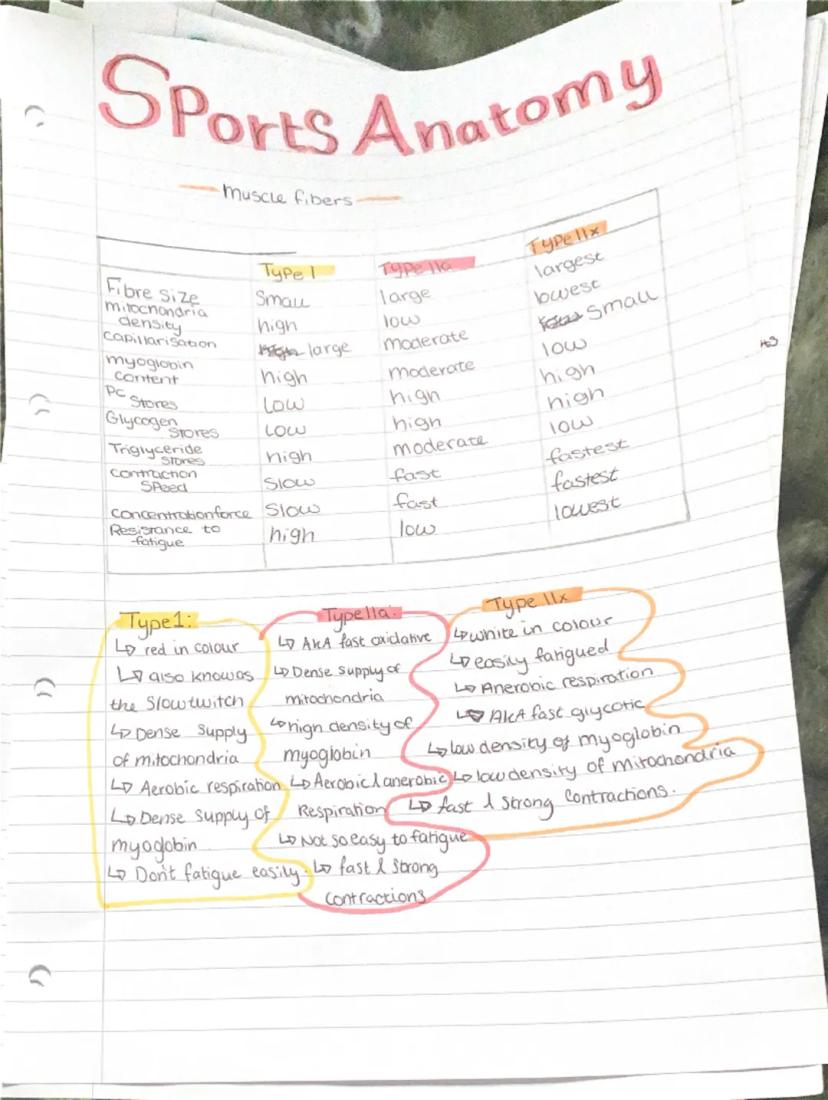 Sports Anatomy
muscle fibers
Type I Type IIa Type IIx
Fibre Size Small large largest
mitochondria density high low lowest
capillarisation large moderate small
myoglobin content high moderate low
PC Stores Low high high
Glycogen Stores Low high high
Triglyceride Stores high moderate low
contraction Speed Slow fast fastest
concentration force Slow fast fastest
Resistance to fatigue high low lowest
Type 1:
↳ red in colour
↳ also known as
the Slow twitch
↳ Dense Supply
of mitochondria
↳ Aerobic respiration
↳ Dense Supply of
myoglobin
↳ Don't fatigue easily.
Type IIa:
↳ AKA fast oxidative
↳ Dense Supply of
mitochondria
↳ high density of
myoglobin
↳ Aerobic & anerobic
Respiration
↳ Not so easy to fatigue
↳ fast & Strong
contractions
Type IIx
↳ white in colour
↳ easily fatigued
↳ Anerobic respiration
↳ AKA fast glycotic
↳ low density of myoglobin
↳ low density of mitochondria
↳ fast & Strong Contractions.